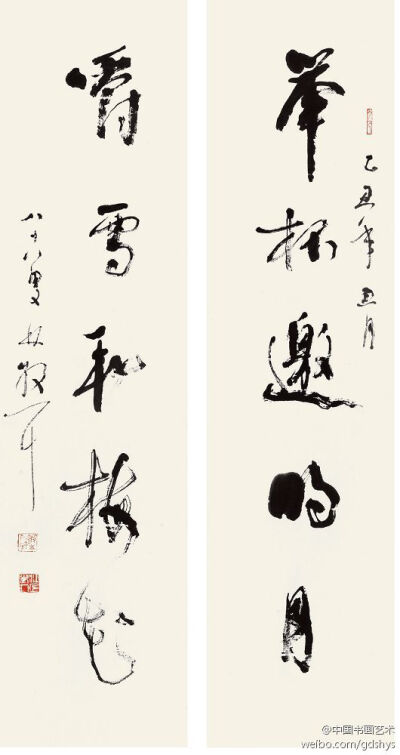 乙丑年月
举杯邀明月
嚼雪和梅花
八十八叟林散耳
@中国书画艺术
weibo.com/gdshys